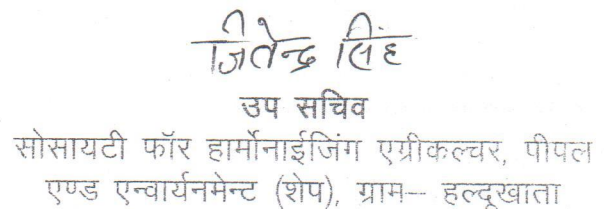 जितेन्द्र सिंह
उप सचिव
सोसायटी फॉर हार्मोनाईजिंग एग्रीकल्चर, पीपल
एण्ड एन्वार्यनमेन्ट (शेप), ग्राम– हल्दूखाता